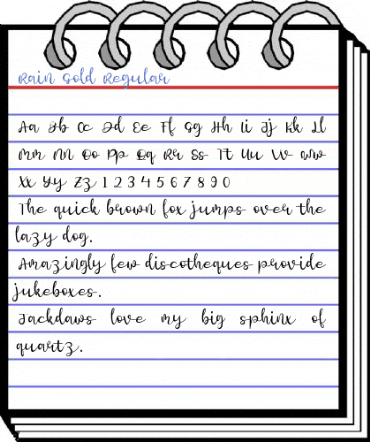 Rain Gold Regular
Aa Bb Cc Dd Ee Ff Gg Hh Ii Jj Kk Ll
Mm Nn Oo Pp Qq Rr Ss Tt Uu Vv Ww
Xx Yy Zz 1 2 3 4 5 6 7 8 9 0
The quick brown fox jumps over the
lazy dog.
Amazingly few discotheques provide
jukeboxes.
Jackdaws love my big sphinx of
quartz.